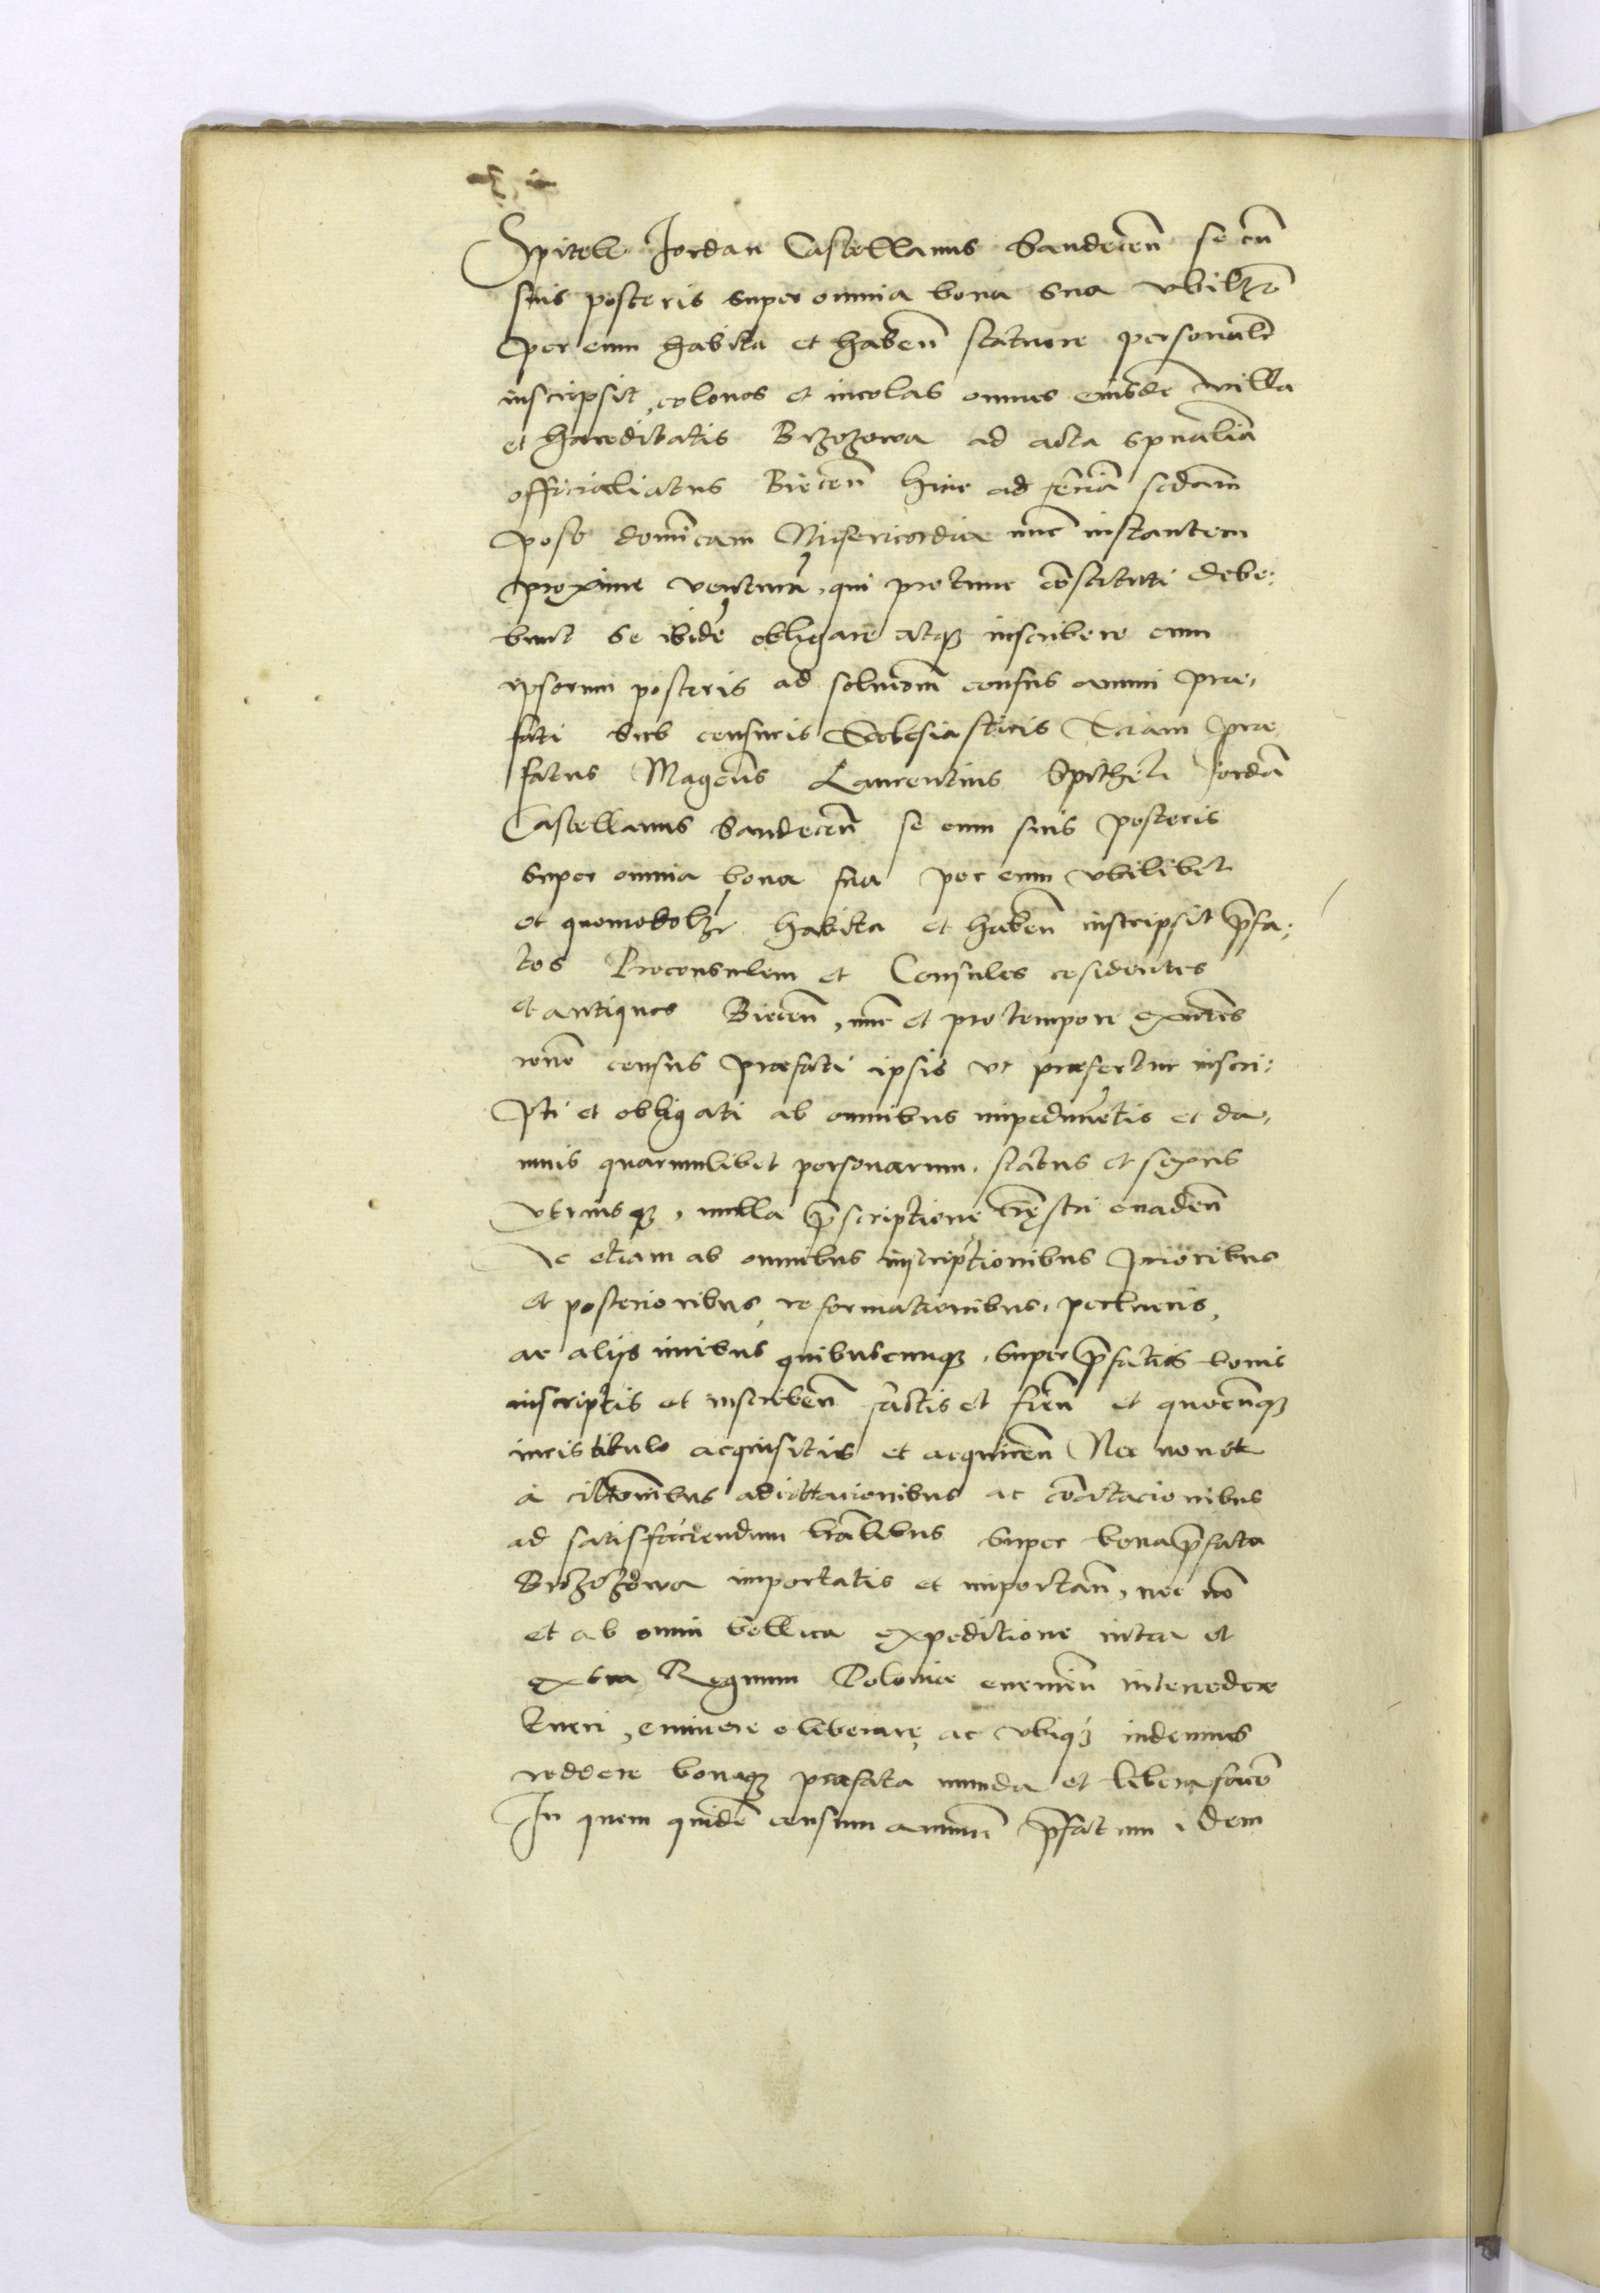 Spitell Jordan Castellanus Sandecen̄ se cū
suis posteris super omnia bona sua vbilꝫ
per eum habita et haben̄ statuere personalr̄
inscripsit, colonos et incolas omnes eiusdē villa
et hæreditatis Brzozowa ad acta spūalia
officialiatus Biecen̄ hinc ad feriā scdam
post dominicam Misericordiæ nūc instantem
proxime venturā, qui pro tunc cōstituti debe:
bunt se ibidē obligare atqꝫ inscribere cum
ipsorum posteris ad solucionē census annui præ:
fati sub censuris Ecclesiasticis Etiam præ
fatus Magcūs Laurentius Spithek Jordā
Castellanus Sandecen̄ se cum suis posteris
super omnia bona sua per eum vbilibet
et quomodolꝫ habita et haben̄ inscripsit p̄fa:
tos Proconsulem et Consules residentes
et antiquos Biecen̄, nūc et pro tempore exn̄tes
rōne census præfati ipsis vt præfertur inscri:
pti et obligati ab omnibus impedimētis et da:
mnis quarumlibet personarum, status et sexus
vtriusqꝫ, nulla p̄scriptione trēstri euaden̄
Ac etiam ab omnibus inscriptionibus prioribus
et posterioribus, reformationibus,
ac alijs iuribus quibuscunqꝫ, super p̄fatis bonis
inscriptis et inscriben̄ factis et fien̄ et quocūqꝫ
iuris titulo acquisitis et acquiren̄ Nec non et
à citationibus adcitationibus ac cōcitacionibus
ad satisfaciendum super bona p̄fata
Brzozowa importatis et importan̄, nec nō
et ab omni bellica expeditione intra et
extra Regnum Poloniæ euenien̄ intercedere
tueri, euincere et liberare, ac vbiqꝫ indemnes
reddere bonaqꝫ præfata munda et libera facere
In quem quidē censum annuū p̄fatum, idem